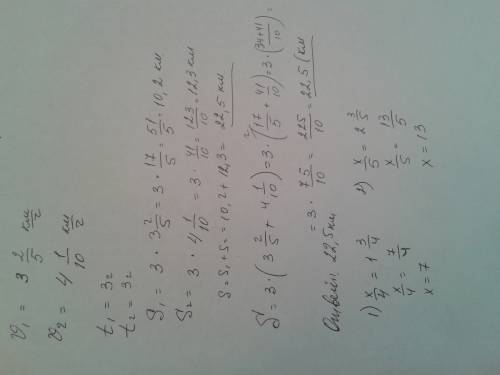 v₁ = 3 2/5 км/г
v₂ = 4 1/10 км/г
t₁ = 3г
t₂ = 3г
S₁ = 3 · 3 2/5 = 3 · 17/5 = 51/5 = 10,2 км
S₂ = 3 · 4 1/10 = 3 · 41/10 = 123/10 = 12,3 км
S = S₁ + S₂ = 10,2 + 12,3 = 22,5 км
S = 3 · (3 2/5 + 4 1/10) = 3 · (17/5 + 41/10) = 3 · (34+41/10) =
= 3 · 75/10 = 225/10 = 22,5 (км
Ответ: 22,5 км
1) x/4 = 1 3/4
x/4 = 7/4
x = 7
2) x/5 = 2 3/5
x/5 = 13/5
x = 13